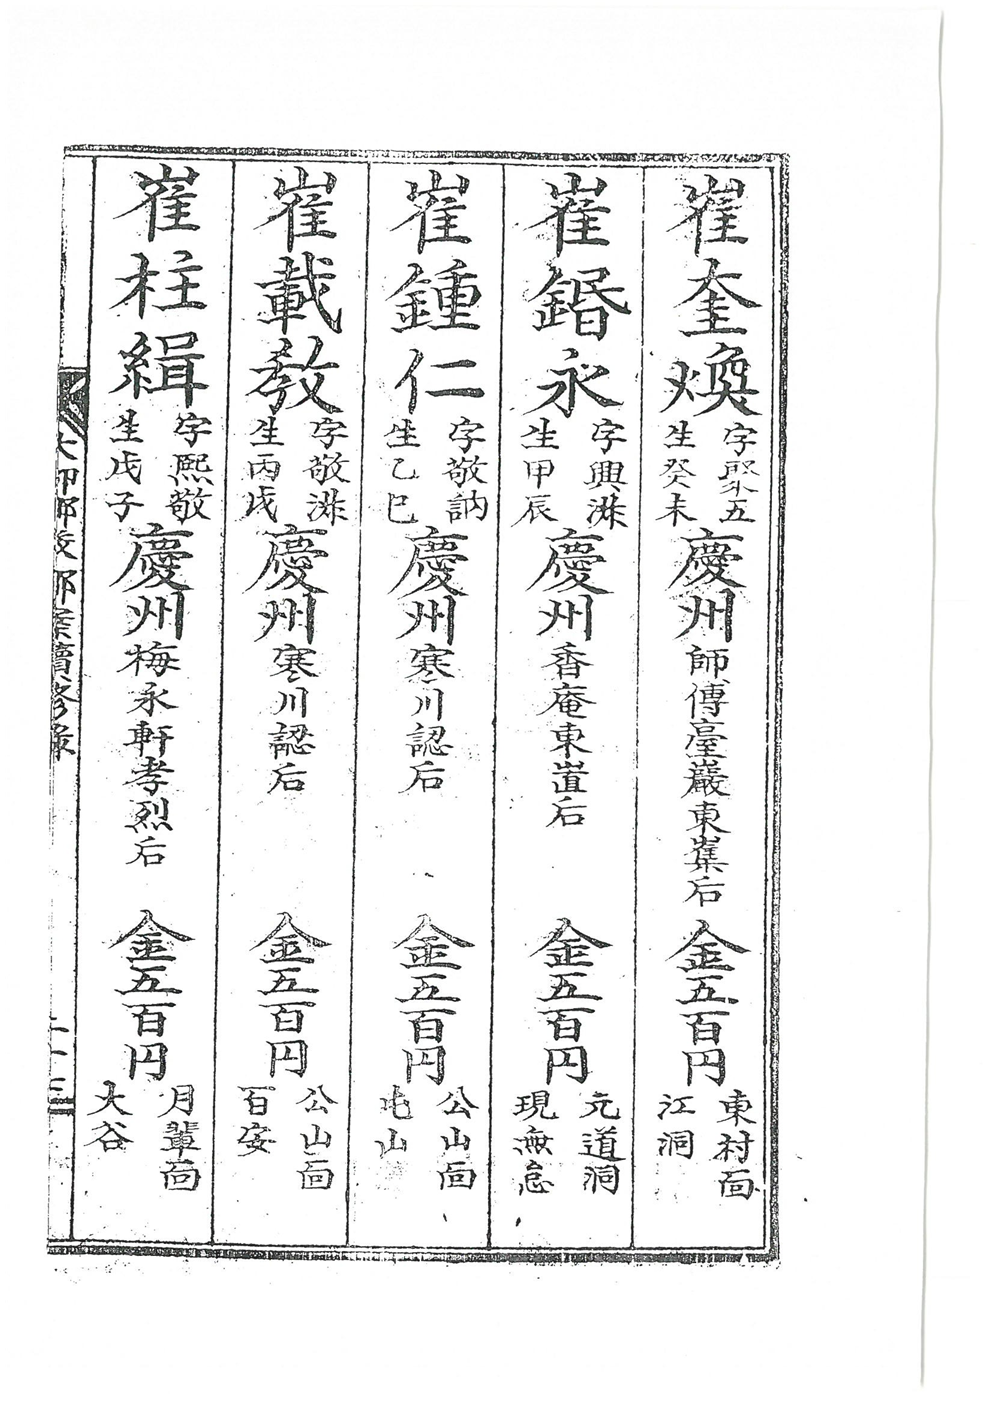 崔奎煥 字聖五 生癸未 慶州 師傅臺巖東㠍后 金五百円 東村面 江洞
崔鍲永 字興洙 生甲辰 慶州 香庵東㟨后 金五百円 元道洞 現無怠
崔鍾仁 字敬訥 生乙巳 慶州 寒川認后 金五百円 公山面 屯山
崔載敎 字敬洙 生丙戌 慶州 寒川認后 金五百円 公山面 百安
崔柱緝 字熙敬 生戊子 慶州 梅氶軒孝烈后 金五百円 月輩面 大谷
續修錄